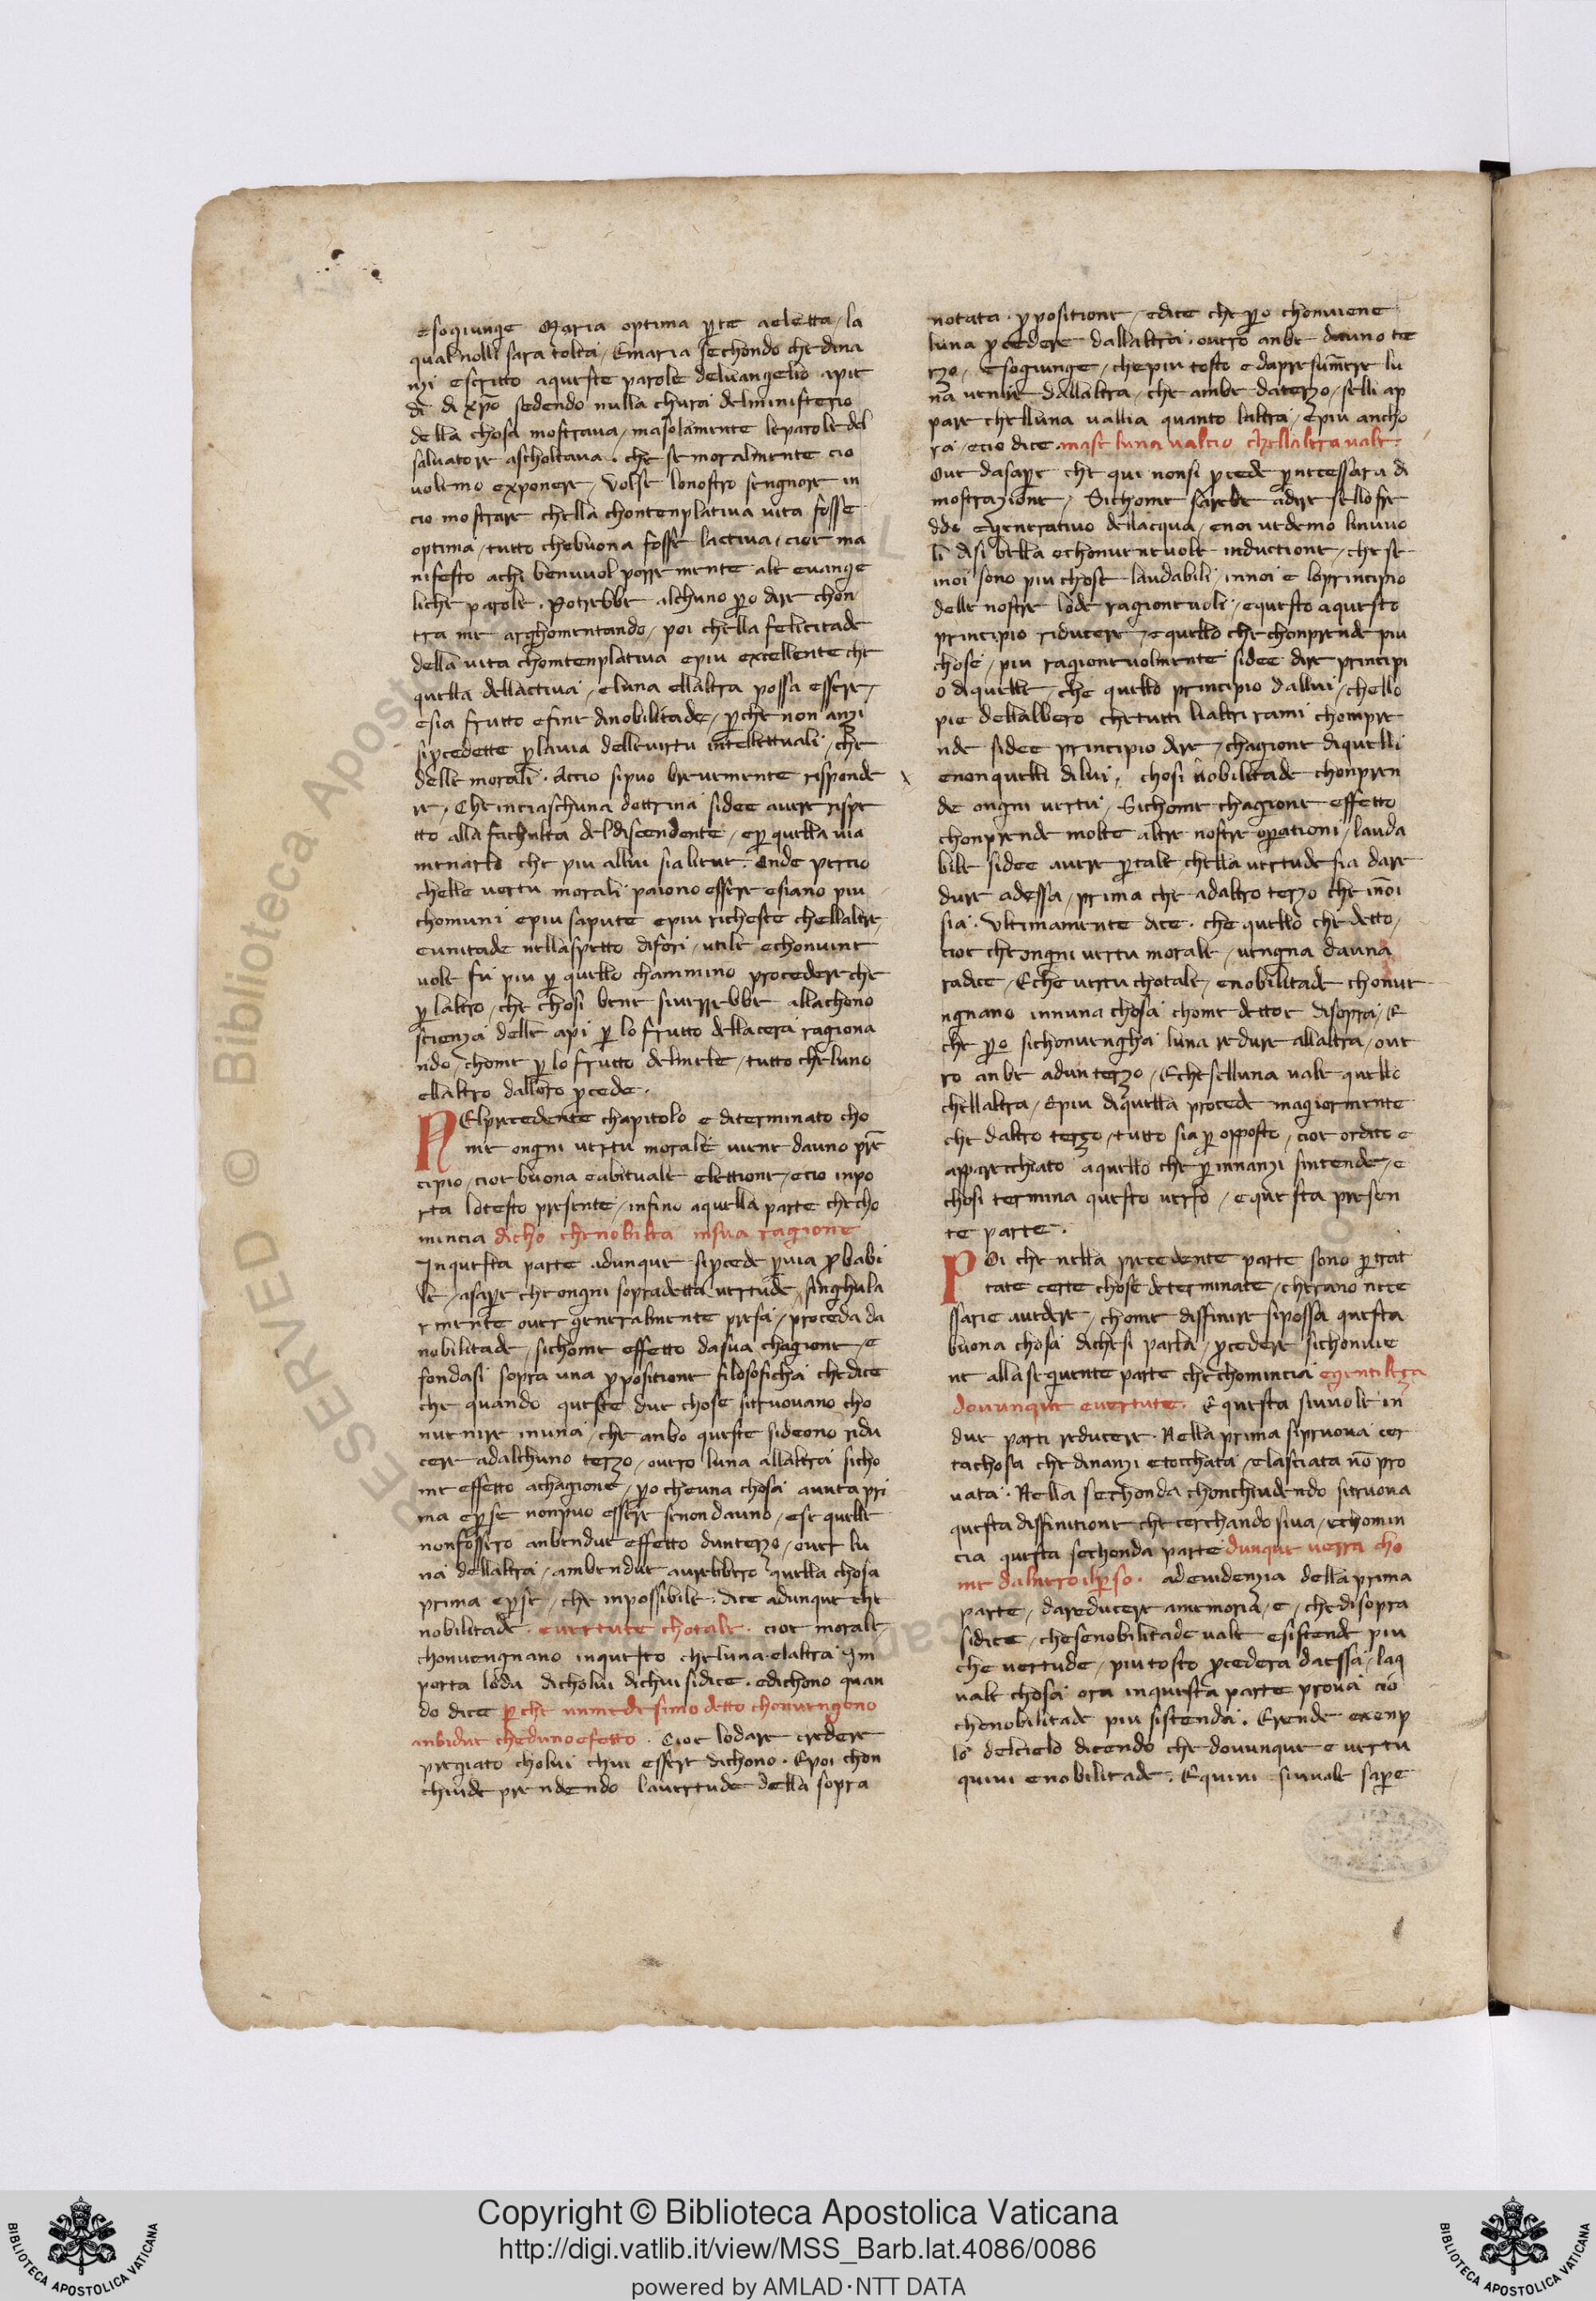 esogiunge Maria optima pͣte aeletta / la
qual nolli sara tolta / Emaria sechondo che dina
nzi escritto aqueste parole deluangelio apie
di di xp̄o sedendo nulla chura delministerio
della chosa mostraua / masolamente leparole del
saluatore ascholtaua. che se moralmente cio
uolemo exponere / Volse lonostro sengnore in
cio mostrare chella chontenplatiua uita fosse
optima / tutto chebuona fosse lactiua / cioe ma
nifesto achi benuuol porre mente alle euange
liche parole. Potrebbe alchuno ꝑo dire chon
tra me arghomentando / poi chella felicitade
della uita chomtenplatiua epiu excellente che
quella dellactiua / eluna ellaltra possa essere /
esia frutto efine dinobilitade / ꝑche non anzi
siꝓcedette ꝑlauia delleuirtu intellettuali / che
delle morali. Accio sipuo breuemente risponde
re. Che inciaschuna dottrina sidee auere rispe
tto alla fachulta del discendente / eꝑ quella uia
menarlo che piu allui sialieue. Onde percio
chelle uertu morali paiono essere esiano piu
chomuni epiu sapute epiu richeste chellaltre /
eunitade nellaspetto difori / utile echonuine
uole fu piu ꝑ quello chammino procedere che
ꝑ laltro / che chosi bene siuerrebbe allachono
scienza delle api ꝑ lo frutto dellacera ragiona
ndo / chome ꝑ lo frutto delmele / tutto cheluno
ellaltro dalloro ꝓcede.
NElprecedente chapitolo e diterminato cho
me ongni uertu morale uiene dauno prē
cipio / cioe buona eabituale elettione / ecio inpo
rta lotesto presente / infino aquella parte checho
mincia dicho chenobilta insua ragione
In questa parte adunque siꝓcede ꝑuia ꝓbabi
le / asaꝑe che ongni sopradetta uertude singhula
rmente ouer generalmente presa / proceda da
nobilitade / sichome effetto dasua chagione / e
fondasi sopra una ꝓpositione filosoficha chedice
che quando queste due chose sitruouano cho
nuenire inuna / che anbo queste sideono ridu
cere adalchuno terzo / ouero luna allaltra sicho
me effetto achagione / ꝑo cheuna chosa auuta pri
ma eꝑse nonpuo essere senon dauno / ese quelle
nonfossero anbendue effetto dunterzo / ouer lu
na dellaltra / ambendue aurebbero quella chosa
prima eꝑse / che inpossibile. dice adunque che
nobilitade. euertute chotale. cioe morale /
chonuengnano inquesto cheluna elaltra Im
porta loda dicholui dichui sidice. edichono quan
do dice ꝑche inmedesimo detto chonuengono
anbidue cheduno efetto. Cioe lodare credere
pregiato cholui chui essere dichono. Epoi chon
chiude prendendo lauertude della sopra
notata ꝓpositione / edice che ꝑo chonuiene
luna ꝓcedere dallaltra. ouero anbe dauno te
rzo. Esogiunge / chepiu tosto e dapresumere lu
na uenire dallaltra / che ambe daterzo / selli ap
pare chelluna uallia quanto laltra / epiu ancho
ra / ecio dice. mase luna ualcio chellaltra uale.
Oue dasaꝑe che qui nonsi ꝓcede ꝑnecessara di
mostrazione / Sichome sarebe adire sello fre
ddo egeneratiuo dellacqua / enoi uedemo linuuo
li disi bella echonueneuole inductione / che se
innoi sono piu chose laudabili / innoi e loprincipio
delle nostre lode ragioneuoli / equesto aquesto
principio riducere / equello che chonprende piu
chose / piu ragioneuolmente sidee dire principi
o diquelle / che quello principio dallui / chello
pie dellalbero chetutti lialtri rami chompre
nde sidee principio dire / chagione diquelli
enonquelli dilui. chosi nobilitade chonpren
de ongni uertu. Sichome chagione effetto
chonprende molte altre nostre oꝑationi / lauda
bile sidee auere ꝑtale / chella uertude sia dare
dure adessa / prima che adaltro terzo che inoi
sia. Vltimamente dice. che quello che detto /
cioe che ongni uertu morale / uengna dauna
radice / Eche uertu chotale / enobilitade chonue
ngnano innuna chosa chome dettoe disopra / E
che ꝑo sichonuengha luna redure allaltra / oue
ro anbe adun terzo / Echesselluna uale quello
chellaltra / Epiu diquella procede magiormente
che daltro terzo / tutto sia ꝑ opposto / cioe ordito e
apparecchiato aquello che ꝑ innanzi sintende / e
chosi termina questo uerso / e questa presen
te parte.
POi che nella precedente parte sono ꝑtrat
tate certe chose determinate / cherano nece
ssarie auedere / chome diffinire sipossa questa
buona chosa dichesi parla / ꝓcedere sichonuie
ne allasequente parte che chomincia egentilezza
douunque euertute. E questa siuuole in
due parti reducere. Nella prima sipruoua cer
tachosa che dinanzi etocchata / elasciata nō pro
uata. Nella sechonda chonchiudendo sitruoua
questa diffinitione che cerchando siua / echomin
cia questa sechonda parte dunque uerra cho
me dalnero ilꝑso. adeuidenzia della prima
parte / dareducere amemoria / e / che disopra
sidice / chesenobilitade uale esistende piu
che uertude / piutosto ꝓcedera daessa / laq
uale chosa ora inquesta parte proua cio
chenobilitade piu sistenda. Erende exenp
lo delcielo dicendo che douunque e uertu
quiui enobilitade. Equiui siuuale saꝑe
Copyright © Biblioteca Apostolica Vaticana
http://digi.vatlib.it/view/MSS_Barb.lat.4086/0086
powered by AMLAD·NTT DATA
BIBLIOTECA APOSTOLICA VATICANA
BIBLIOTECA APOSTOLICA VATICANA